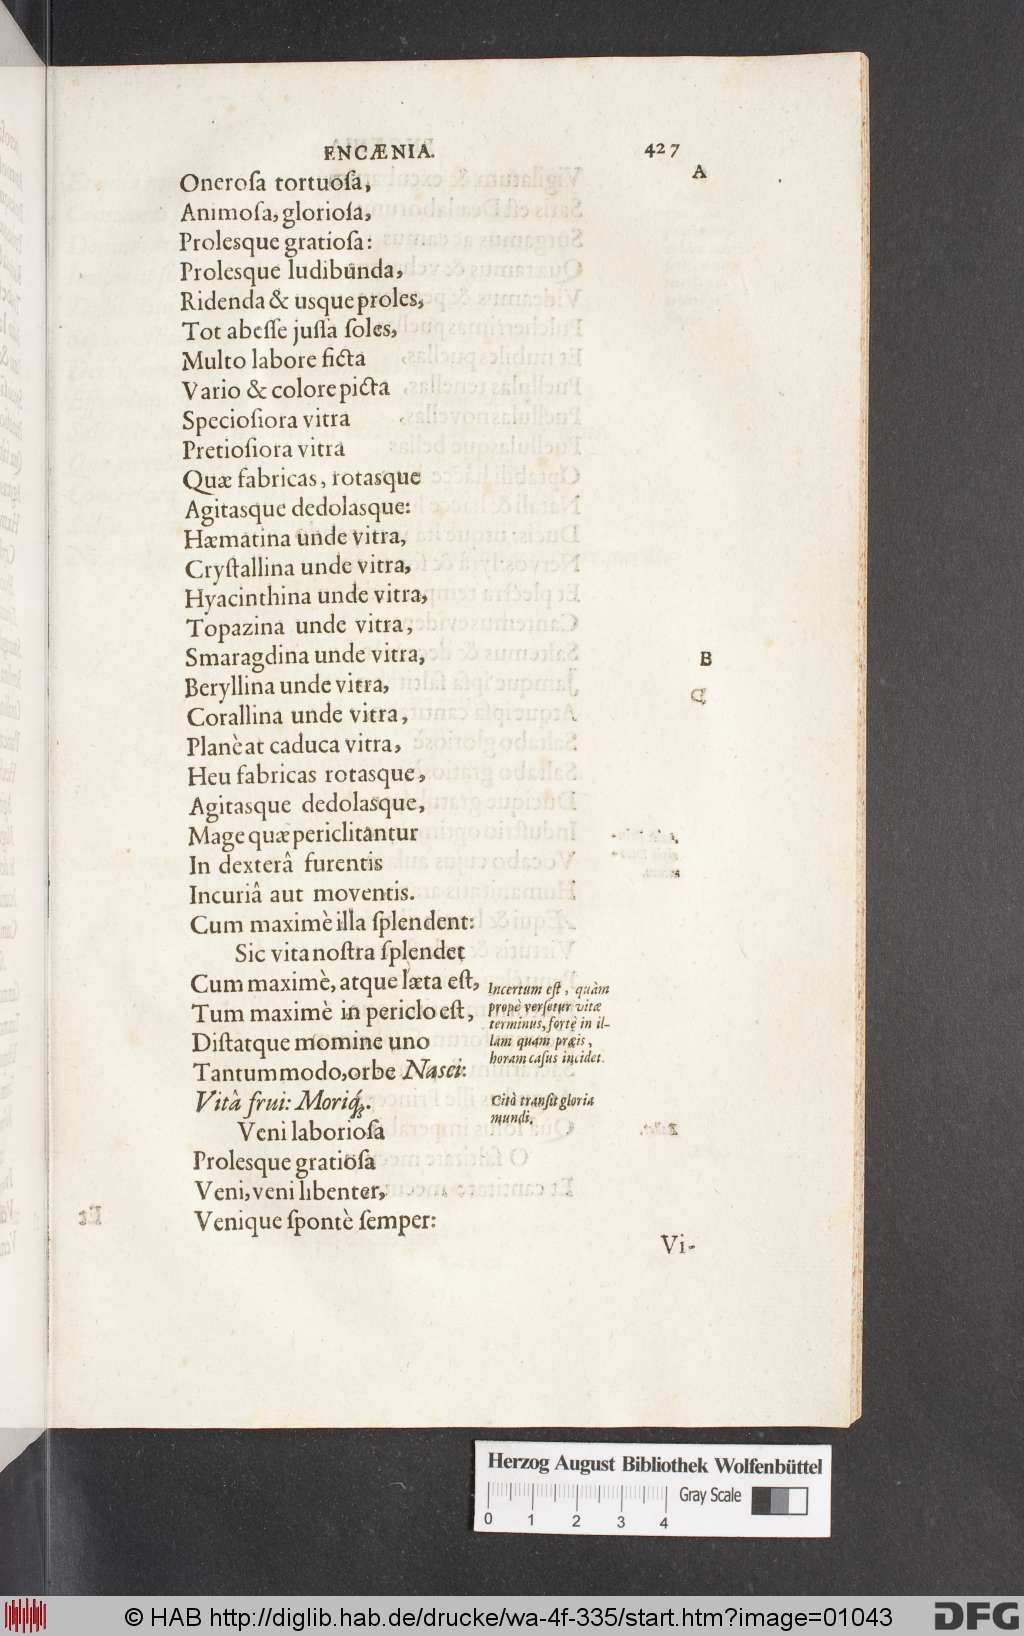 ENCÆNIA.
427
A
Oneroſa tortuoſa,
Animoſa, glorioſa,
Proleſque gratioſa:
Proleſque ludibunda,
Ridenda & uſque proles,
Tot abeſſe juſſa ſoles,
Multo labore ficta
Vario & colore picta
Specioſiora vitra
Pretioſiora vitra
Quæ fabricas, rotasque
Agitasque dedolasque:
Hæmatina unde vitra,
Cryſtallina unde vitra,
Hyacinthina unde vitra,
Topazina unde vitra,
Smaragdina unde vitra,
B
Beryllina unde vitra,
Corallina unde vitra,
Planè at caduca vitra,
Heu fabricas rotasque,
Agitasque dedolasque,
Mage quæ periclitantur
In dexterâ furentis
Incuriâ aut moventis.
Cum maximè illa ſplendent:
Sic vita noſtra ſplendet
Cum maximè, atque læta eſt,
Tum maximè in periclo eſt,
Diſtatque momine uno
Tantummodo, orbe Nasci:
Vitâ frui: Moriq́;.
Incertum eſt, quàm
propè verſetur vitæ
terminus, fortè in il-
lam quam præis,
horam caſus incidet.
Citò tranſit gloria
mundi.
Veni laborioſa
Proleſque gratioſa
Veni, veni libenter,
Venique ſpontè ſemper:
Vi-
Herzog August Bibliothek Wolfenbüttel
Gray Scale
0 1 2 3 4
© HAB http://diglib.hab.de/drucke/wa-4f-335/start.htm?image=01043
DFG